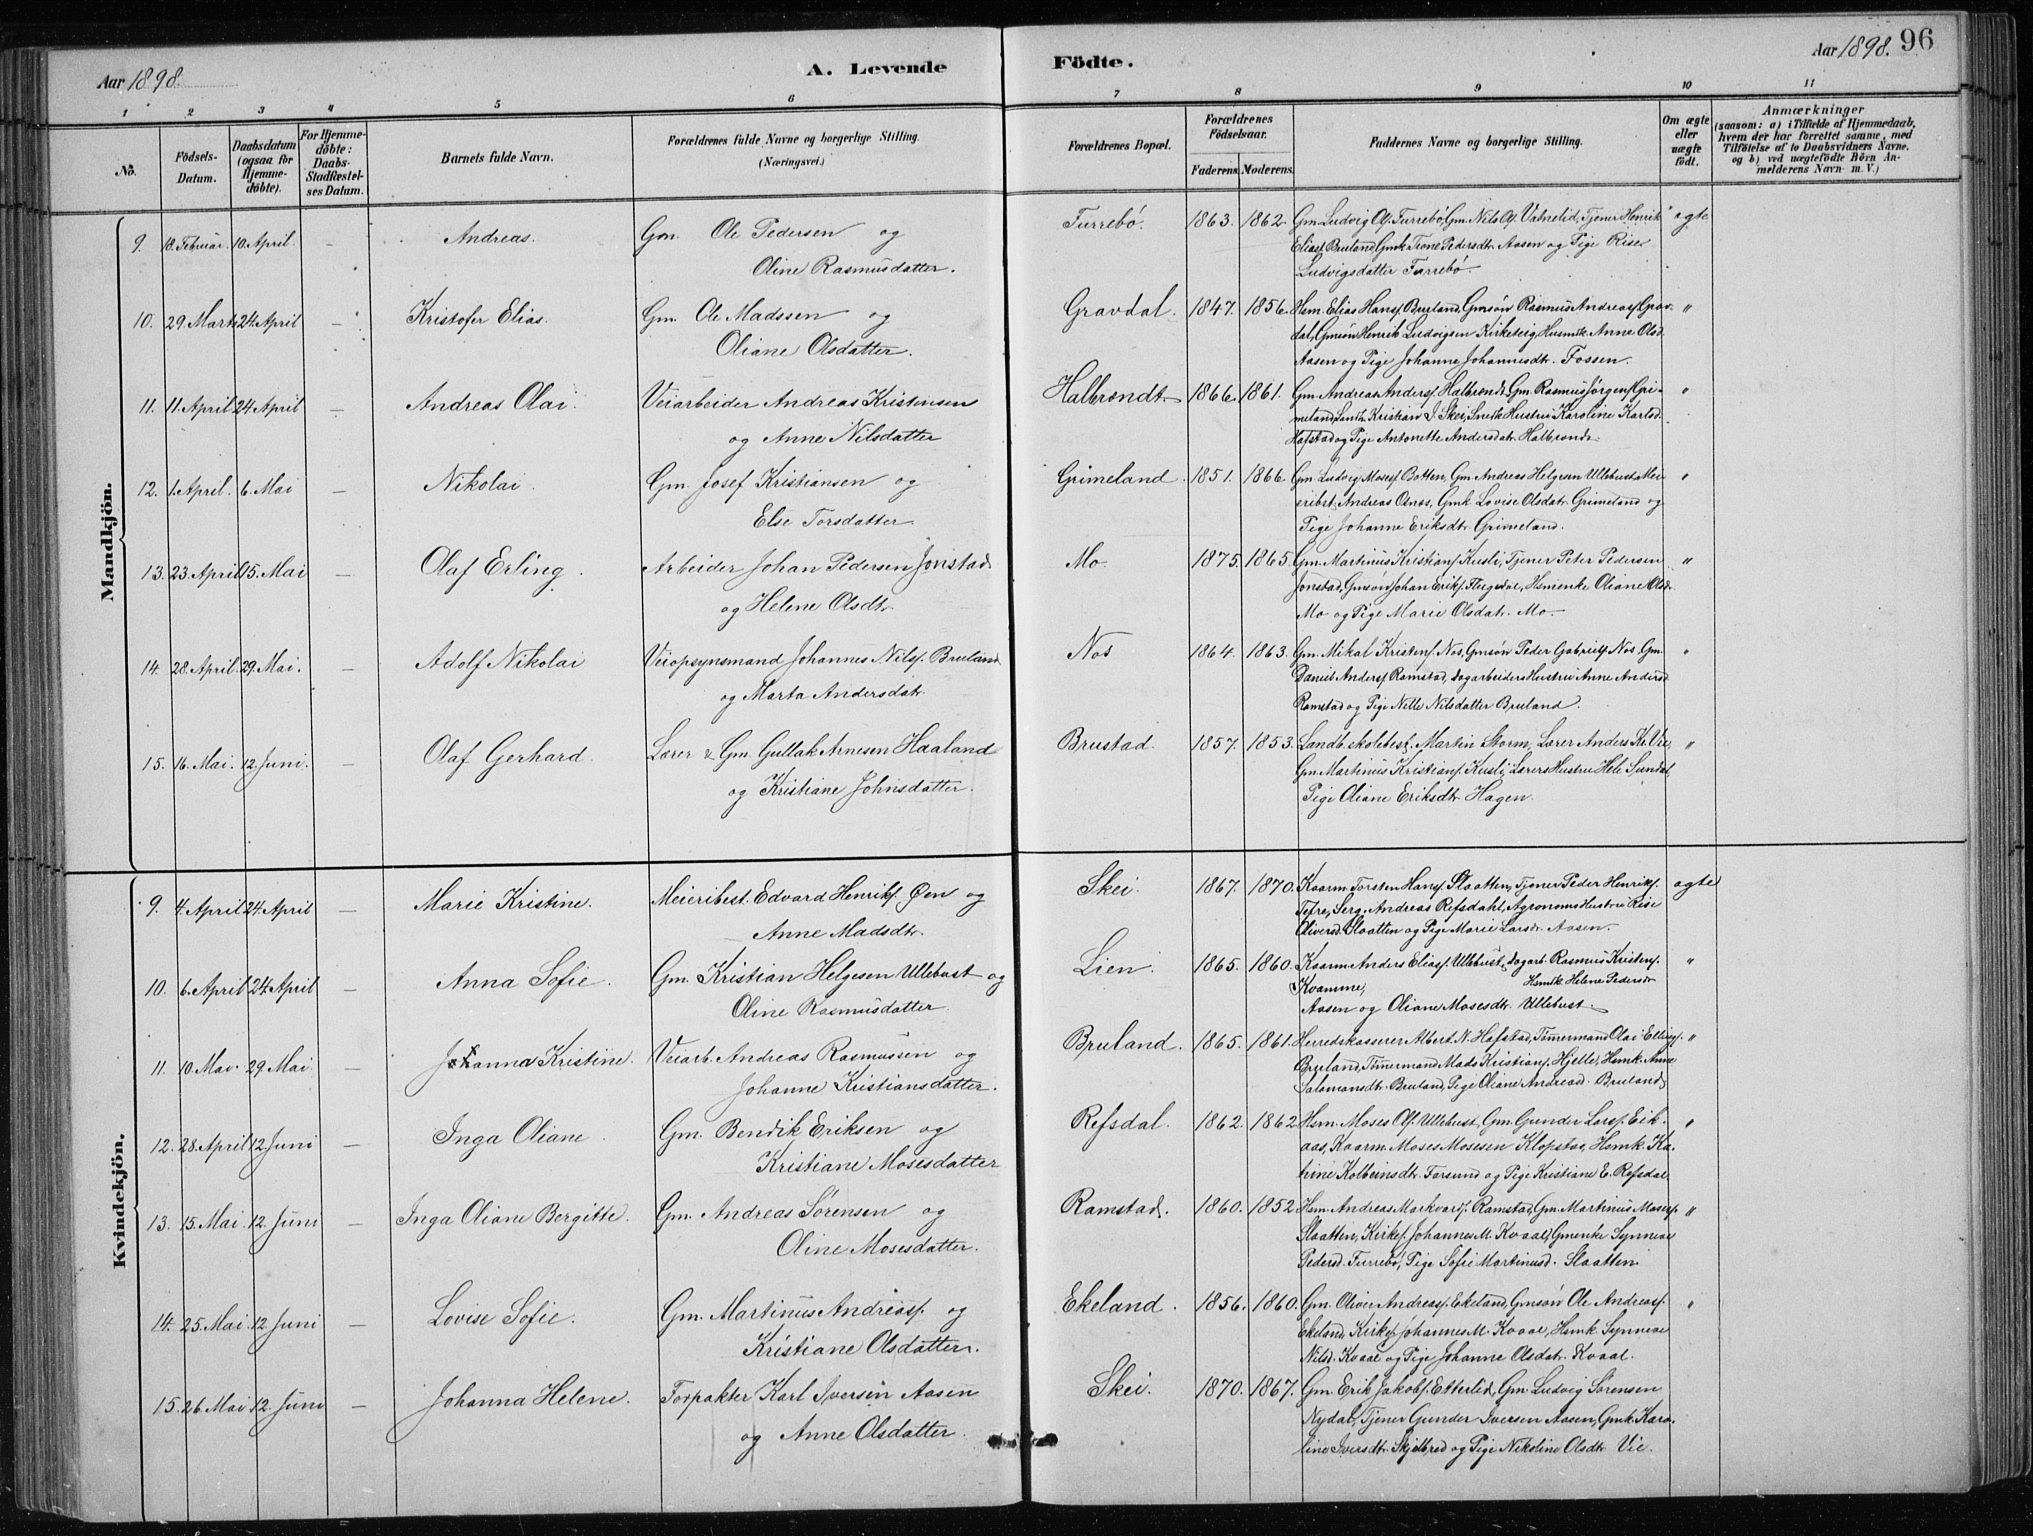 Aar 1898.
A. Levende
Födte.
Aar 1898. 96
1 2 3 4 5 6 7 8 9 10 11
No. Födsels-Datum. Daabsdatum (ogsaa for Hjemmedöbte). For Hjemmedöbte: Daabs-Stadfæstelses Datum. Barnets fulde Navn. Forældrenes fulde Navne og borgerlige Stilling. (Næringsvei.) Forældrenes Bopæl. Forældrenes Födselsaar. Faderens. Moderens. Faddernes Navne og borgerlige Stilling. Om ægte eller uægte födt. Anmærkninger (saasom: a) i Tilfælde af Hjemmedaab, hvem der har forrettet samme, med Tilföielse af to Daabsvidners Navne, og b) ved uægtefödte Börn Anmelderens Navn m. V.)
Mandkjön.
9. 18. Februar. 10. April. – Andreas. Gm. Ole Pedersen og Furrebø. 1863. 1862. Gm. Ludvig Ols. Furrebø, Gm. Nils Ols. Vatnelid, Tjener Henrik ægte
Oline Rasmusdatter. Eliass. Bruland, Gmk. Trone Pedersdtr. Aasen og Pige Rise
Ludvigsdatter Furrebø.
10. 29. Marts 24. April – Kristofer Elias. Gm. Ole Madssen og Gravdal. 1847. 1856. Hsm. Elias Hans. Bruland, Gmsøn Rasmus Andreas. Grav- "
Oliane Olsdatter. dal, Gmsøn Henrik Ludvigsen Kirketeig, Husmk. Anne Olsd.
Aasen og Pige Johanne Johannesdtr. Fossen.
11. 11. April 24. April – Andreas Olai. Veiarbeider Andreas Kristensen Halbrendt 1866. 1861. Gm. Andreas Anders. Halbrendt, Gm. Rasmus Jørgens. Gri- "
og Anne Nilsdatter meland, Kristian J. Skei, Hustru Karoline Karlsd.
Hafstad og Pige Antonette Andersdatr. Halbrendt.
12. 1. April. 6. Mai – Nikolai. Gm. Josef Kristiansen og Grimeland. 1851. 1866. Gm. Ludvig Moses. Botten, Gm. Andreas Helgesen Ullebust, Mei- "
Else Torsdatter eribst. Andreas Osnes, Gmk. Lovise Olsdatr. Grimeland og
Pige Johanne Eriksdtr. Grimeland.
13. 23. April 15. Mai – Olaf Erling. Arbeider Johan Pedersen Jonstad Mo. 1875. 1865. Gm. Martinus Kristians. Kusli, Tjener Peter Pedersen "
og Helene Olsdtr. Jonstad, Gmsøn Johan Eriks. Flugedal, Hsmenke Oliane Olsd.
Mo og Pige Marie Olsdatr. Mo.
14. 28. April 29. Mai. – Adolf Nikolai Veiopsynsmand Johannes Nils. Bruland Nos 1864. 1863. Gm. Mikal Kristens. Nos, Gmsøn Peder Gabriels. Nos, Gm. "
og Marta Andersdatr. Daniel Anders. Ramstad, Dagarbeiders Hustru Anne Andersd.
Ramstad og Pige Nille Nilsdatter Bruland.
15. 16. Mai. 12. Juni. – Olaf Gerhard. Lærer & Gm. Gullak Arnesen Haaland Brustad. 1857. 1853. Landb. skolebest. Martin Storm, Lærer Anders K. Vie, "
og Kristiane Johnsdatter. Gm. Martinus Kristians. Kusli, Lærers Hustru Hele Sundal,
Pige Oliane Eriksdtr. Hagen.
Kvindekjön.
9. 4. April 24. April – Marie Kristine. Meieribest. Edvard Henriks. Øen og Skei. 1867. 1870. Kaarm. Torsten Hans. Slaatten, Tjener Peder Henriks. ægte
Anne Madsdtr. Tefre, Serg. Andreas Refsdahl, Agronoms Hustru Rise
Oliversd. Slaatten og Pige Marie Larsdr. Aasen.
10. 6. April 24. April – Anna Sofie. Gm. Kristian Helgesen Ullebust og Lien. 1865. 1860. Kaarm. Anders Elias. Ullebust, Dagarb. Rasmus Kristens. "
Oline Rasmusdatter. Kvamme, Hsmk. Helene Pedersdr
Aasen og Oliane Mosesdtr. Ullebust.
11. 10. Mai. 29. Mai. – Johanna Kristine. Veiarb. Andreas Rasmussen og Bruland. 1865. 1861. Herredskasserer Albert N. Hafstad, Tømermand Olai Ellings. "
Johanne Kristiansdatter. Bruland, Tømermand Mads Kristians. Hjelle, Hsmk. Anne
Salamonsdtr. Bruland, Pige Oliane Andreasd. Bruland.
12. 28. April 12. Juni – Inga Oliane. Gm. Bendik Eriksen og Refsdal. 1862. 1862 Hsm. Moses Ols. Ullebust, Gm. Gunder Lars. Eik- "
Kristiane Mosesdatter aas, Kaarm. Moses Mosesen Klopstad, Hsmk. Ka-
trine Kolbeinsdtr. Farsund og Pige Kristiane E. Refsdal.
13. 15. Mai 12. Juni – Inga Oliane Bergitte. Gm. Andreas Sørensen og Ramstad. 1860. 1852 Hsm. Andreas Markvars. Ramstad, Gm. Martinus Moses. "
Oline Mosesdatter. Slaatten, Kirkes. Johannes M. Kvaal, Gmenke Synneve
Pedersd. Furrebø, Pige Sofie Martinusd. Slaatten.
14. 25. Mai 12. Juni – Lovise Sofie. Gm. Martinus Andreass. og Ekeland. 1856. 1860. Gm. Oliver Andreass. Ekeland, Gmsøn Ole Andreass. "
Kristiane Olsdatter. Ekeland, Kirkes. Johannes M. Kvaal, Hsmk. Synneve
Nilsd. Kvaal og Pige Johanne Olsdatr. Kvaal.
15. 26. Mai 12. Juni – Johanna Helene. Forpakter Karl Iversen Aasen Skei. 1870. 1867. Gm. Erik Jakobs. Etterlid, Gm. Ludvig Sørensen
og Anne Olsdatter. Nydal, Tjener Gunder Iversen Aasen, Gmk. Karo-
line Iversdtr. Skjelbred og Pige Nikoline Olsdtr. Vie.